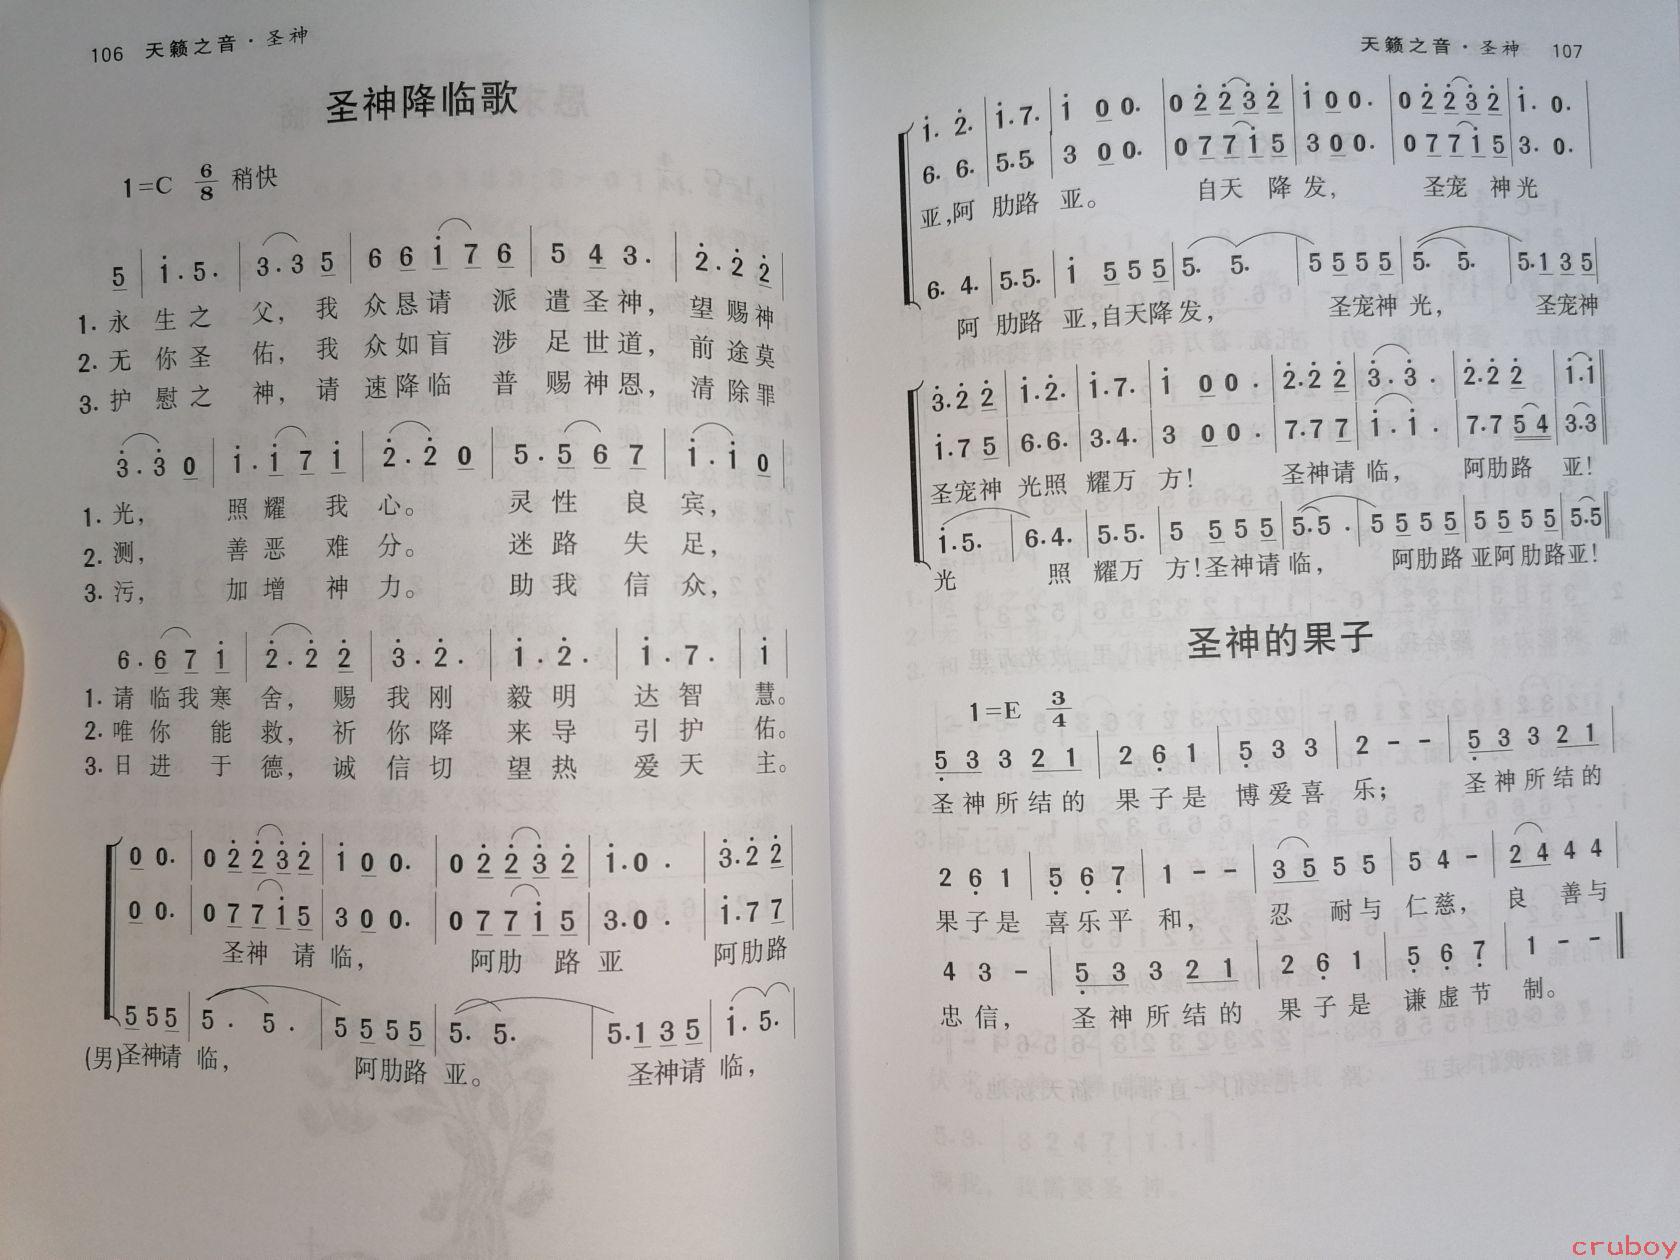 106 天籁之音·圣神
圣神降临歌
1=C 6/8 稍快
5 | i·5· | 3·3 5 | 6 6 i 7 6 | 5 4 3· | 2·2 2 |
1. 永生之父，我众恳请派遣圣神，望赐神
2. 无你圣佑，我众如盲涉足世道，前途莫
3. 护慰之神，请速降临普赐神恩，清除罪
3·3 0 | i·i 7 i | 2·2 0 | 5·5 6 7 | i·i 0 |
1. 光，照耀我心。灵性良宾，
2. 测，善恶难分。迷路失足，
3. 污，加增神力。助我信众，
6·6 7 i | 2·2 2 | 3·2· | i·2· | i·7· | i |
1. 请临我寒舍，赐我刚毅明达智慧。
2. 唯你能救，祈你降来导引护佑。
3. 日进于德，诚信切望热爱天主。
0 0· | 0 2 2 3 2 | i 0 0· | 0 2 2 3 2 | i·0· | 3·2 2 |
0 0· | 0 7 7 i 5 | 3 0 0· | 0 7 7 i 5 | 3·0· | i·7 7 |
圣神请临，阿肋路亚 阿肋路
5 5 5 | 5· 5· | 5 5 5 5 | 5· 5· | 5·1 3 5 | i·5· |
(男)圣神请临，阿肋路亚。圣神请临，
天籁之音·圣神 107
i· 2· | i·7· | i 0 0· | 0 2 2 3 2 | i 0 0· | 0 2 2 3 2 | i· 0· |
6· 6· | 5·5· | 3 0 0· | 0 7 7 i 5 | 3 0 0· | 0 7 7 i 5 | 3· 0· |
亚，阿肋路亚。自天降发，圣宠神光
6· 4· | 5·5· | i 5 5 5 | 5· 5· | 5 5 5 5 | 5· 5· | 5·1 3 5 |
阿肋路亚，自天降发，圣宠神光，圣宠神
3·2 2 | i·2· | i·7· | i 0 0· | 2·2 2 | 3·3· | 2·2 2 | i·i ‖
i·7 5 | 6·6· | 3·4· | 3 0 0· | 7·7 7 | i·i· | 7·7 5 4 | 3·3 ‖
圣宠神光照耀万方！圣神请临，阿肋路亚！
i·5· | 6·4· | 5·5· | 5 5 5 5 | 5·5· | 5 5 5 5 | 5 5 5 5 | 5·5 ‖
光照耀万方！圣神请临，阿肋路亚阿肋路亚！
圣神的果子
1=E 3/4
5 3 3 2 1 | 2 6 1 | 5 3 3 | 2 - - | 5 3 3 2 1 |
圣神所结的果子是博爱喜乐；圣神所结的
2 6 1 | 5 6 7 | 1 - - | 3 5 5 5 | 5 4 - | 2 4 4 4 |
果子是喜乐平和，忍耐与仁慈，良善与
4 3 - | 5 3 3 2 1 | 2 6 1 | 5 6 7 | 1 - - ‖
忠信，圣神所结的果子是谦虚节制。
cruboy